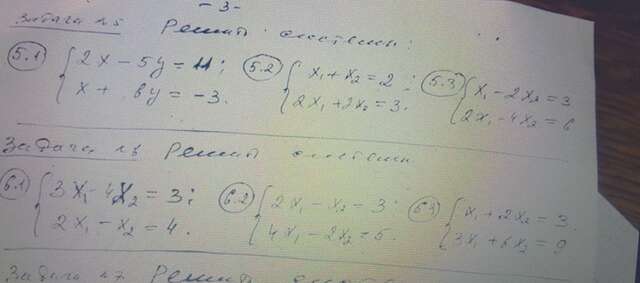 - 3 -
Задача №5 Решить системы:
5.1 { 2x - 5y = 11; x + 6y = -3. 5.2 { x₁ + x₂ = 2; 2x₁ + 2x₂ = 3. 5.3 { x₁ - 2x₂ = 3 2x₁ - 4x₂ = 6
Задача №6 Решить системы
6.1 { 3x₁ - 4x₂ = 3; 2x₁ - x₂ = 4. 6.2 { 2x₁ - x₂ = 3; 4x₁ - 2x₂ = 5. 6.3 { x₁ + 2x₂ = 3. 3x₁ + 6x₂ = 9
Задача №7 Решить